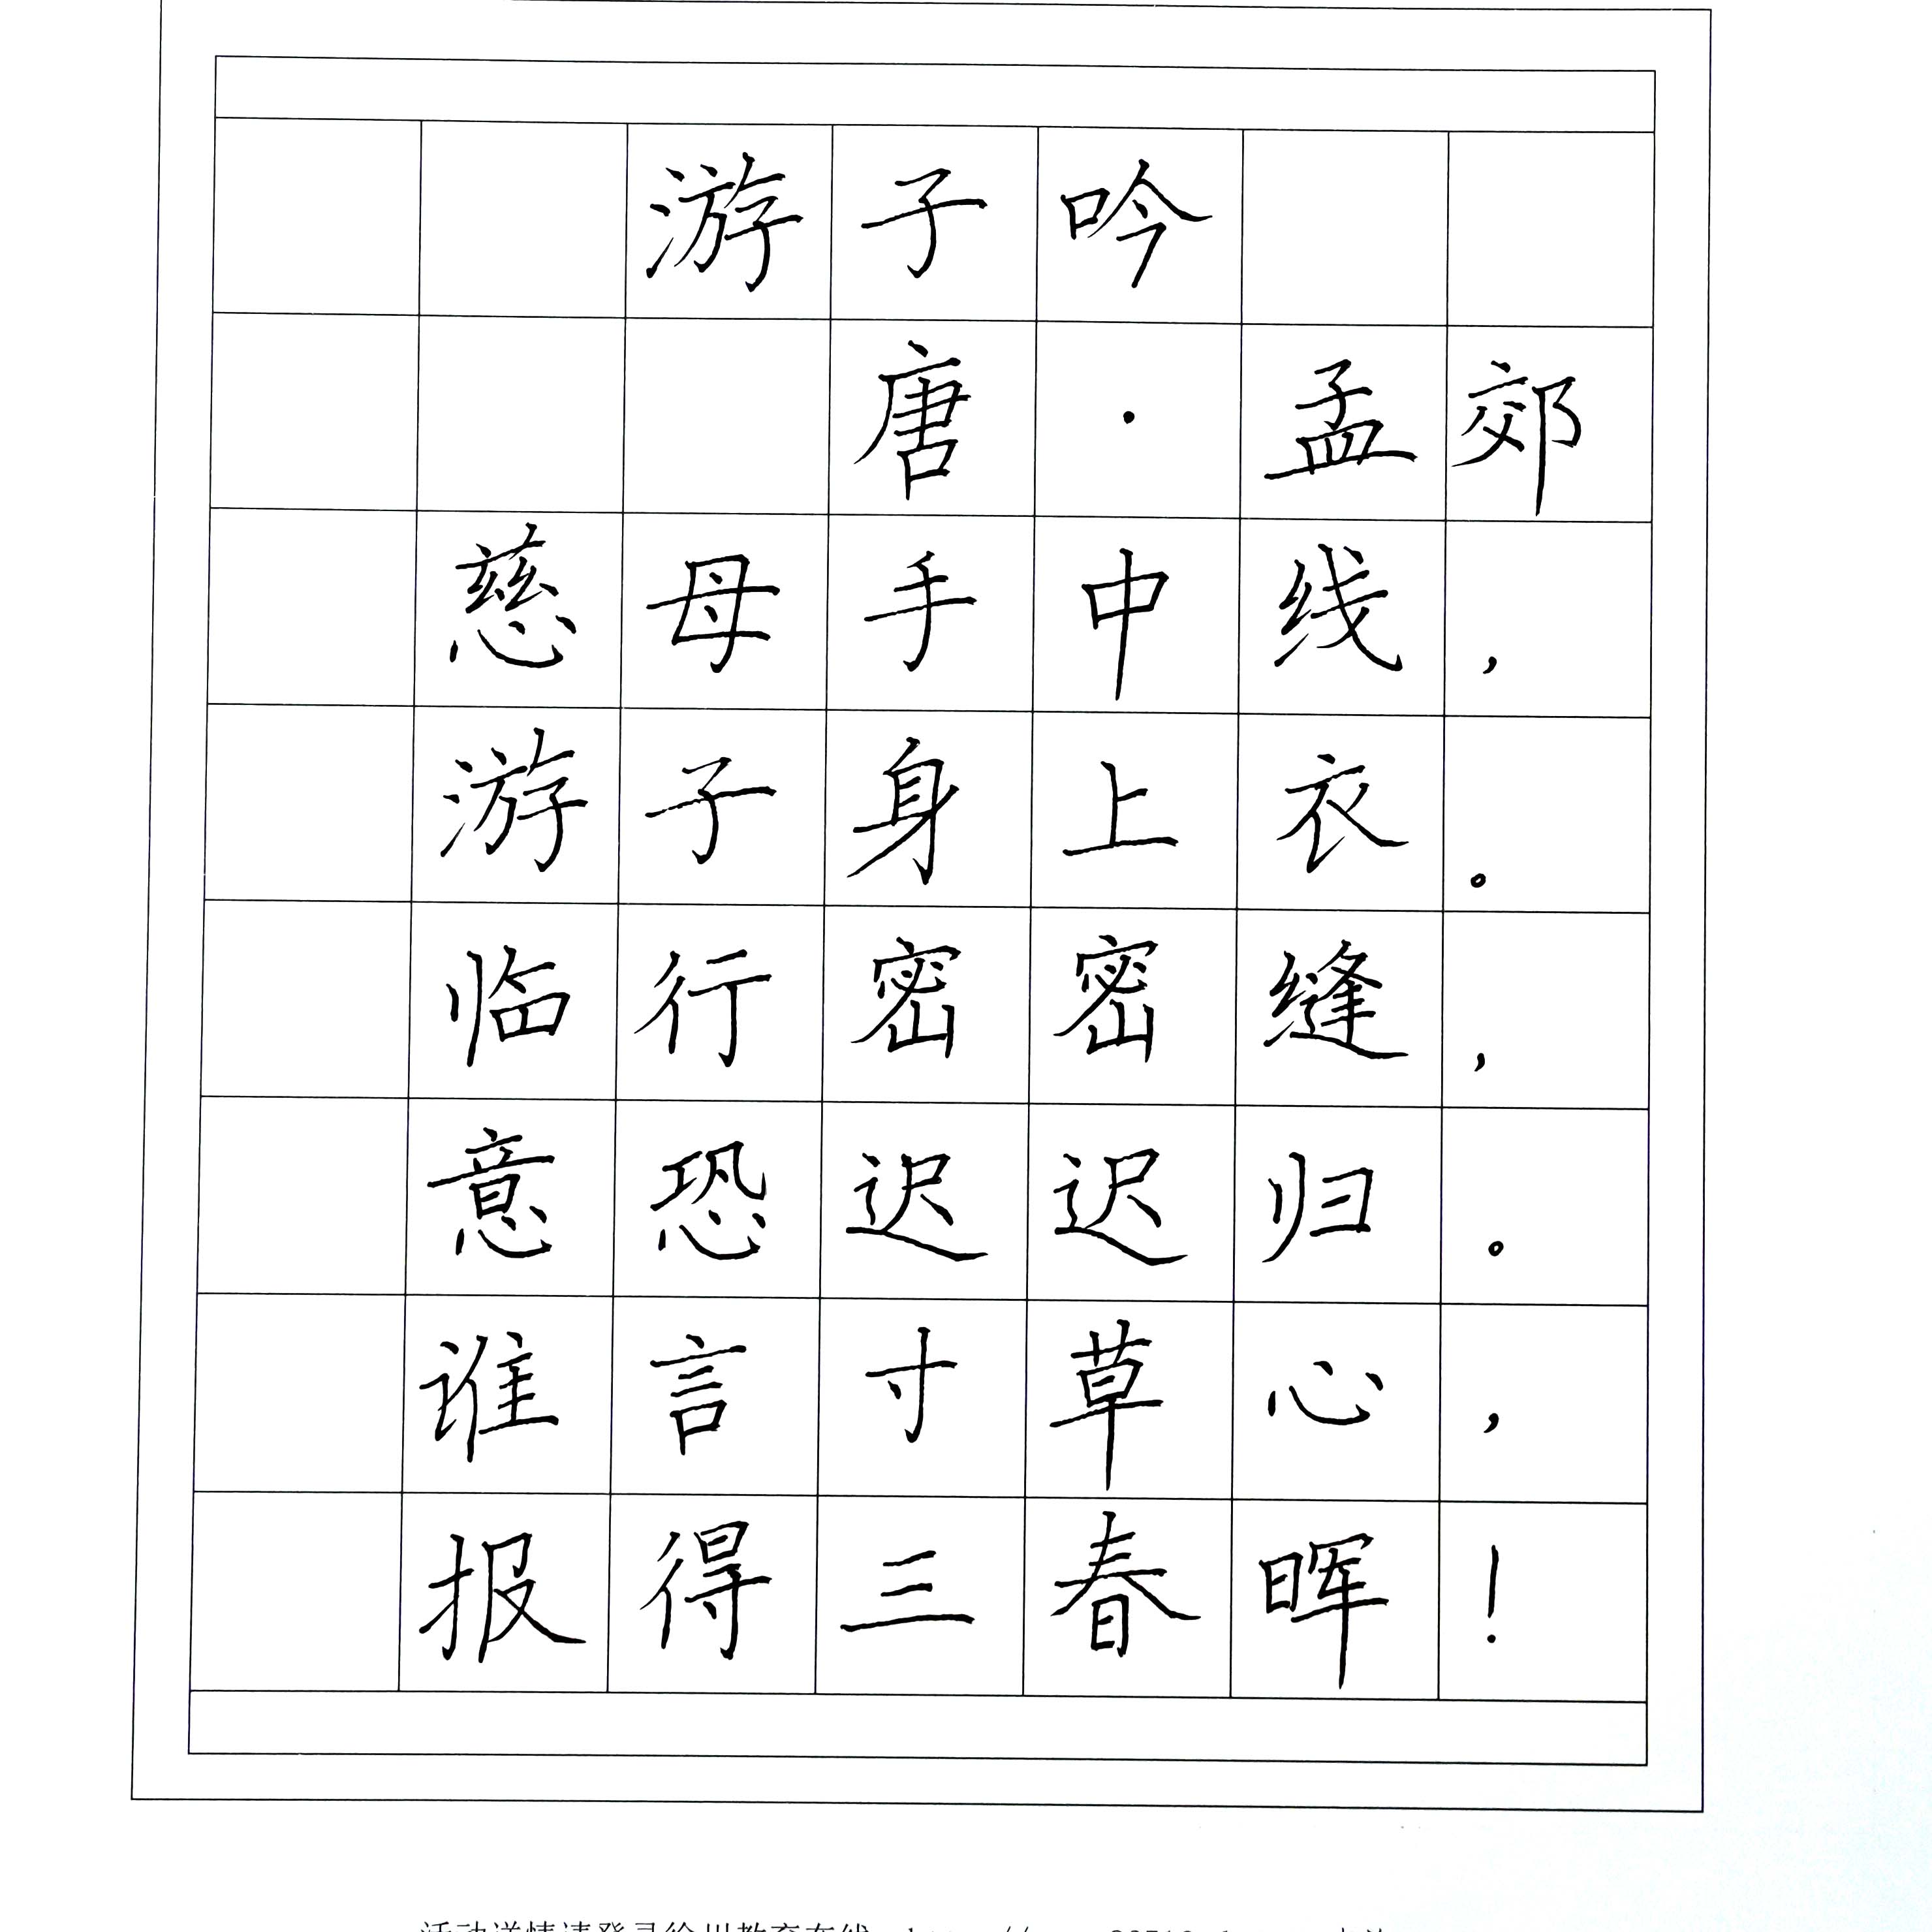 游子吟
唐·孟郊
慈母手中线，
游子身上衣。
临行密密缝，
意恐迟迟归。
谁言寸草心，
报得三春晖！